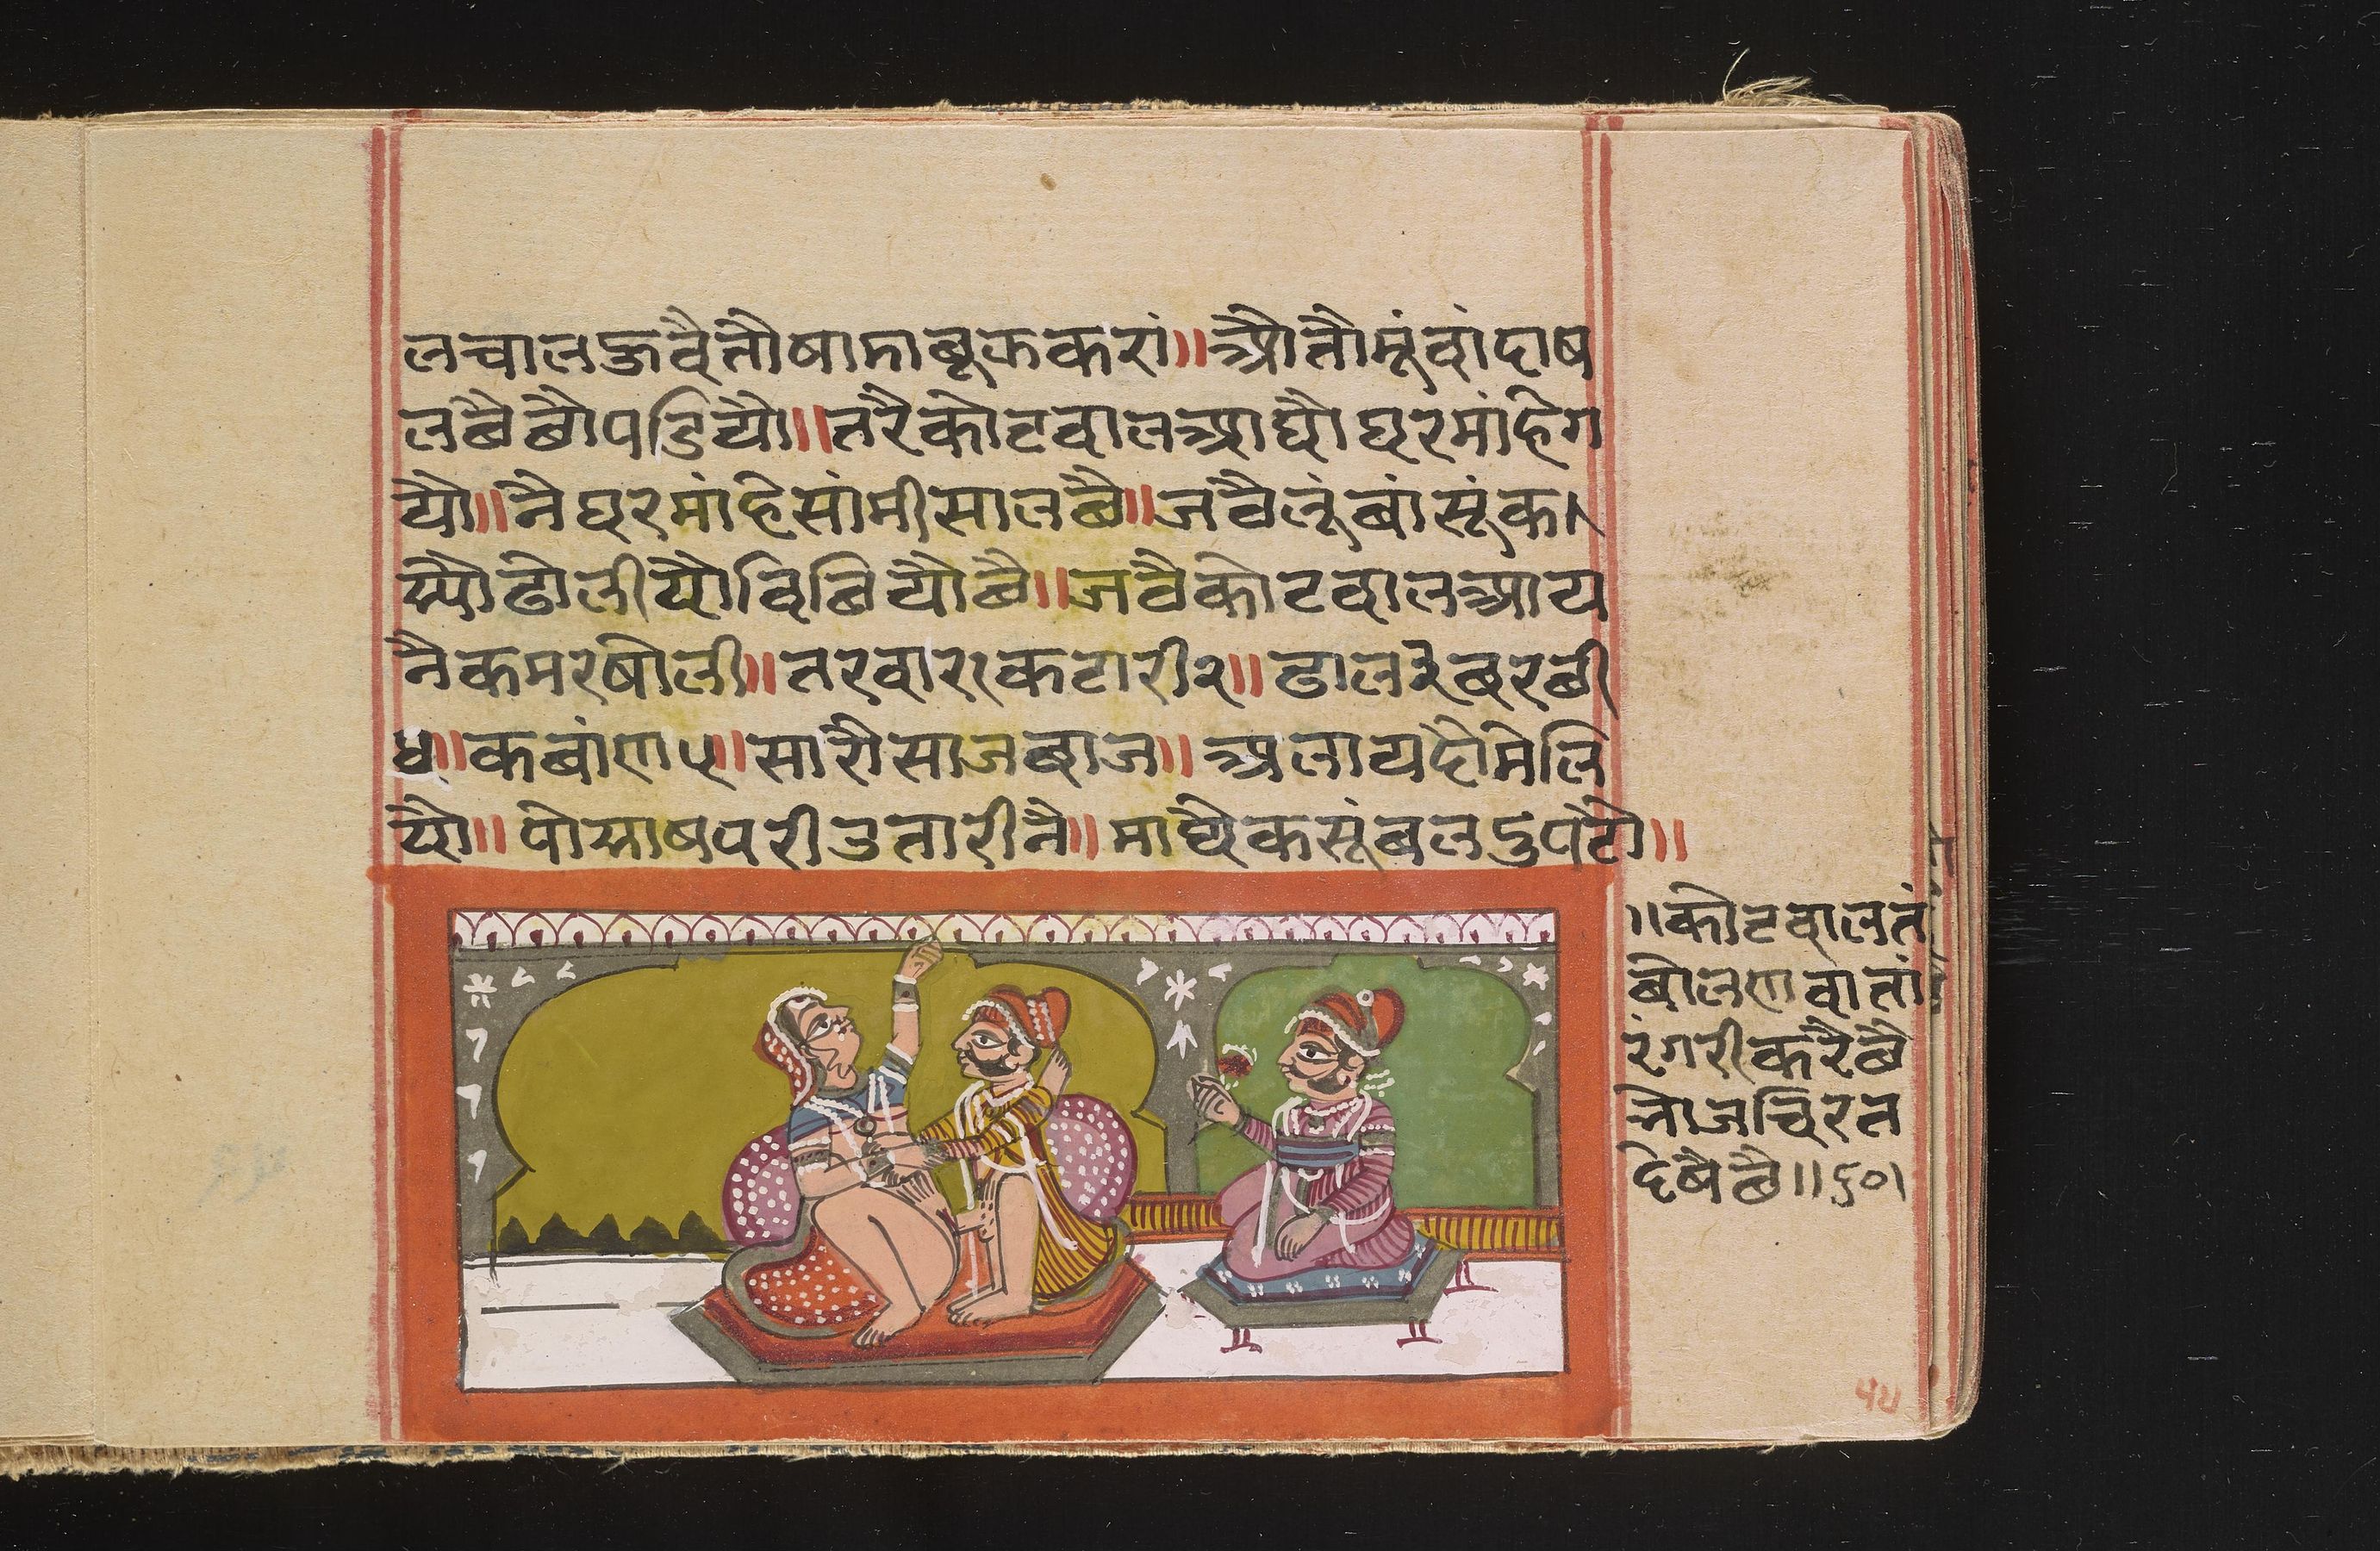 लचालऊवैतौषामाबूककरां॥औतौमूंवांदाष
लछैछौपडियौ॥तरैकोटवालआघौघरमांहेग
यौ॥नैघरमांहेसांमीसालछै॥जवैलूंबांसूंक
स्यौढोलीयौविछियौछै॥जवैकोटवालआय
नैकमरषोली॥तरवार१कटारी२॥ढाल३बरछी
४॥कबांण५॥सारौसाजबाज॥अलायदौमेलि
यौ॥पोसाषपरीउतारीनै॥माथैकसूंबलदुपटौ॥
॥कोटवालतं
बोलणवातां
रंगरीकरैछै
नोजचिरत
देषैछै॥६०।
५४